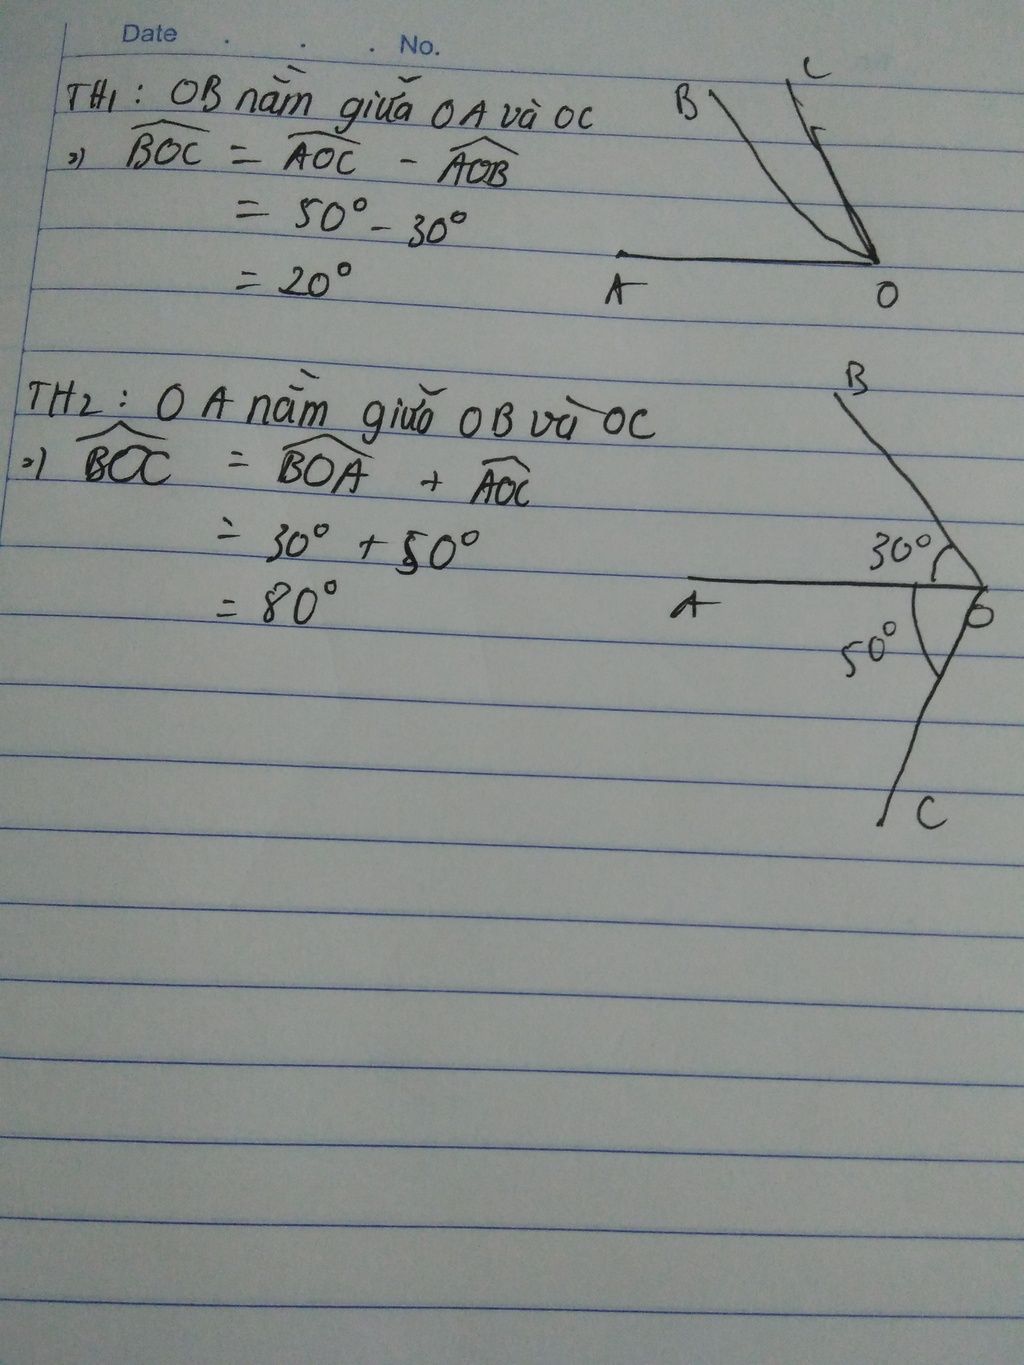 Date . . . No.
TH1: OB nằm giữa OA và OC
=) BOC = AOC - AOB
= 50° - 30°
= 20°
B
C
A
O
TH2: OA nằm giữa OB và OC
=) BOC = BOA + AOC
= 30° + 50°
= 80°
B
30°
A
O
50°
C